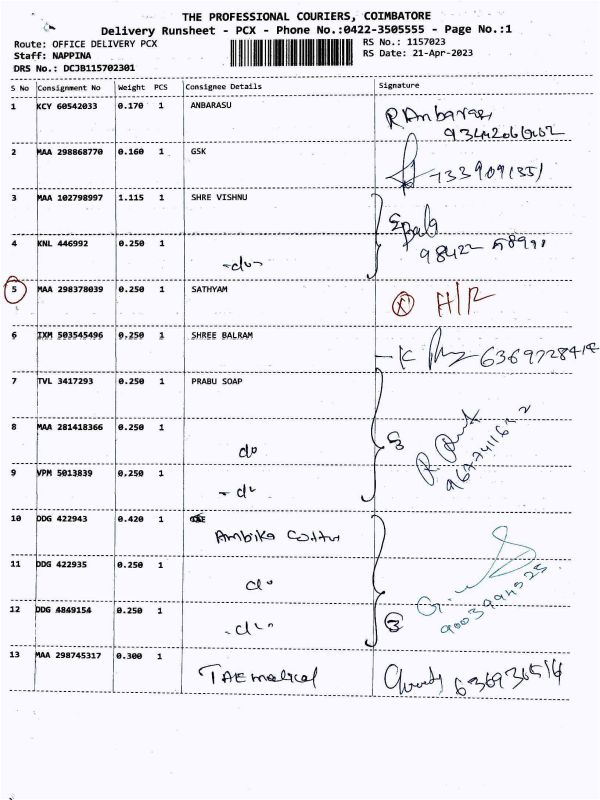 THE PROFESSIONAL COURIERS, COIMBATORE
Delivery Runsheet - PCX - Phone No.:0422-3505555 - Page No.:1
Route: OFFICE DELIVERY PCX
RS No.: 1157023
Staff: NAPPINA
RS Date: 21-Apr-2023
DRS No.: DCJB115702301
S No Consignment No Weight PCS Consignee Details Signature
1 KCY 60542033 0.170 1 ANBARASU R Anbarasu
2 MAA 298868770 0.160 1 GSK
3 MAA 102798997 1.115 1 SHRE VISHNU
4 KNL 446992 0.250 1 -do-
5 MAA 298378039 0.250 1 SATHYAM H/R
6 IXM 503545496 0.250 1 SHREE BALRAM 6369728414
7 TVL 3417293 0.250 1 PRABU SOAP
8 MAA 281418366 0.250 1 do
9 VPM 5013839 0.250 1 -do
10 DDG 422943 0.420 1 Ambika
11 DDG 422935 0.250 1 do
12 DDG 4849154 0.250 1 -do-
13 MAA 298745317 0.300 1 TAE medical